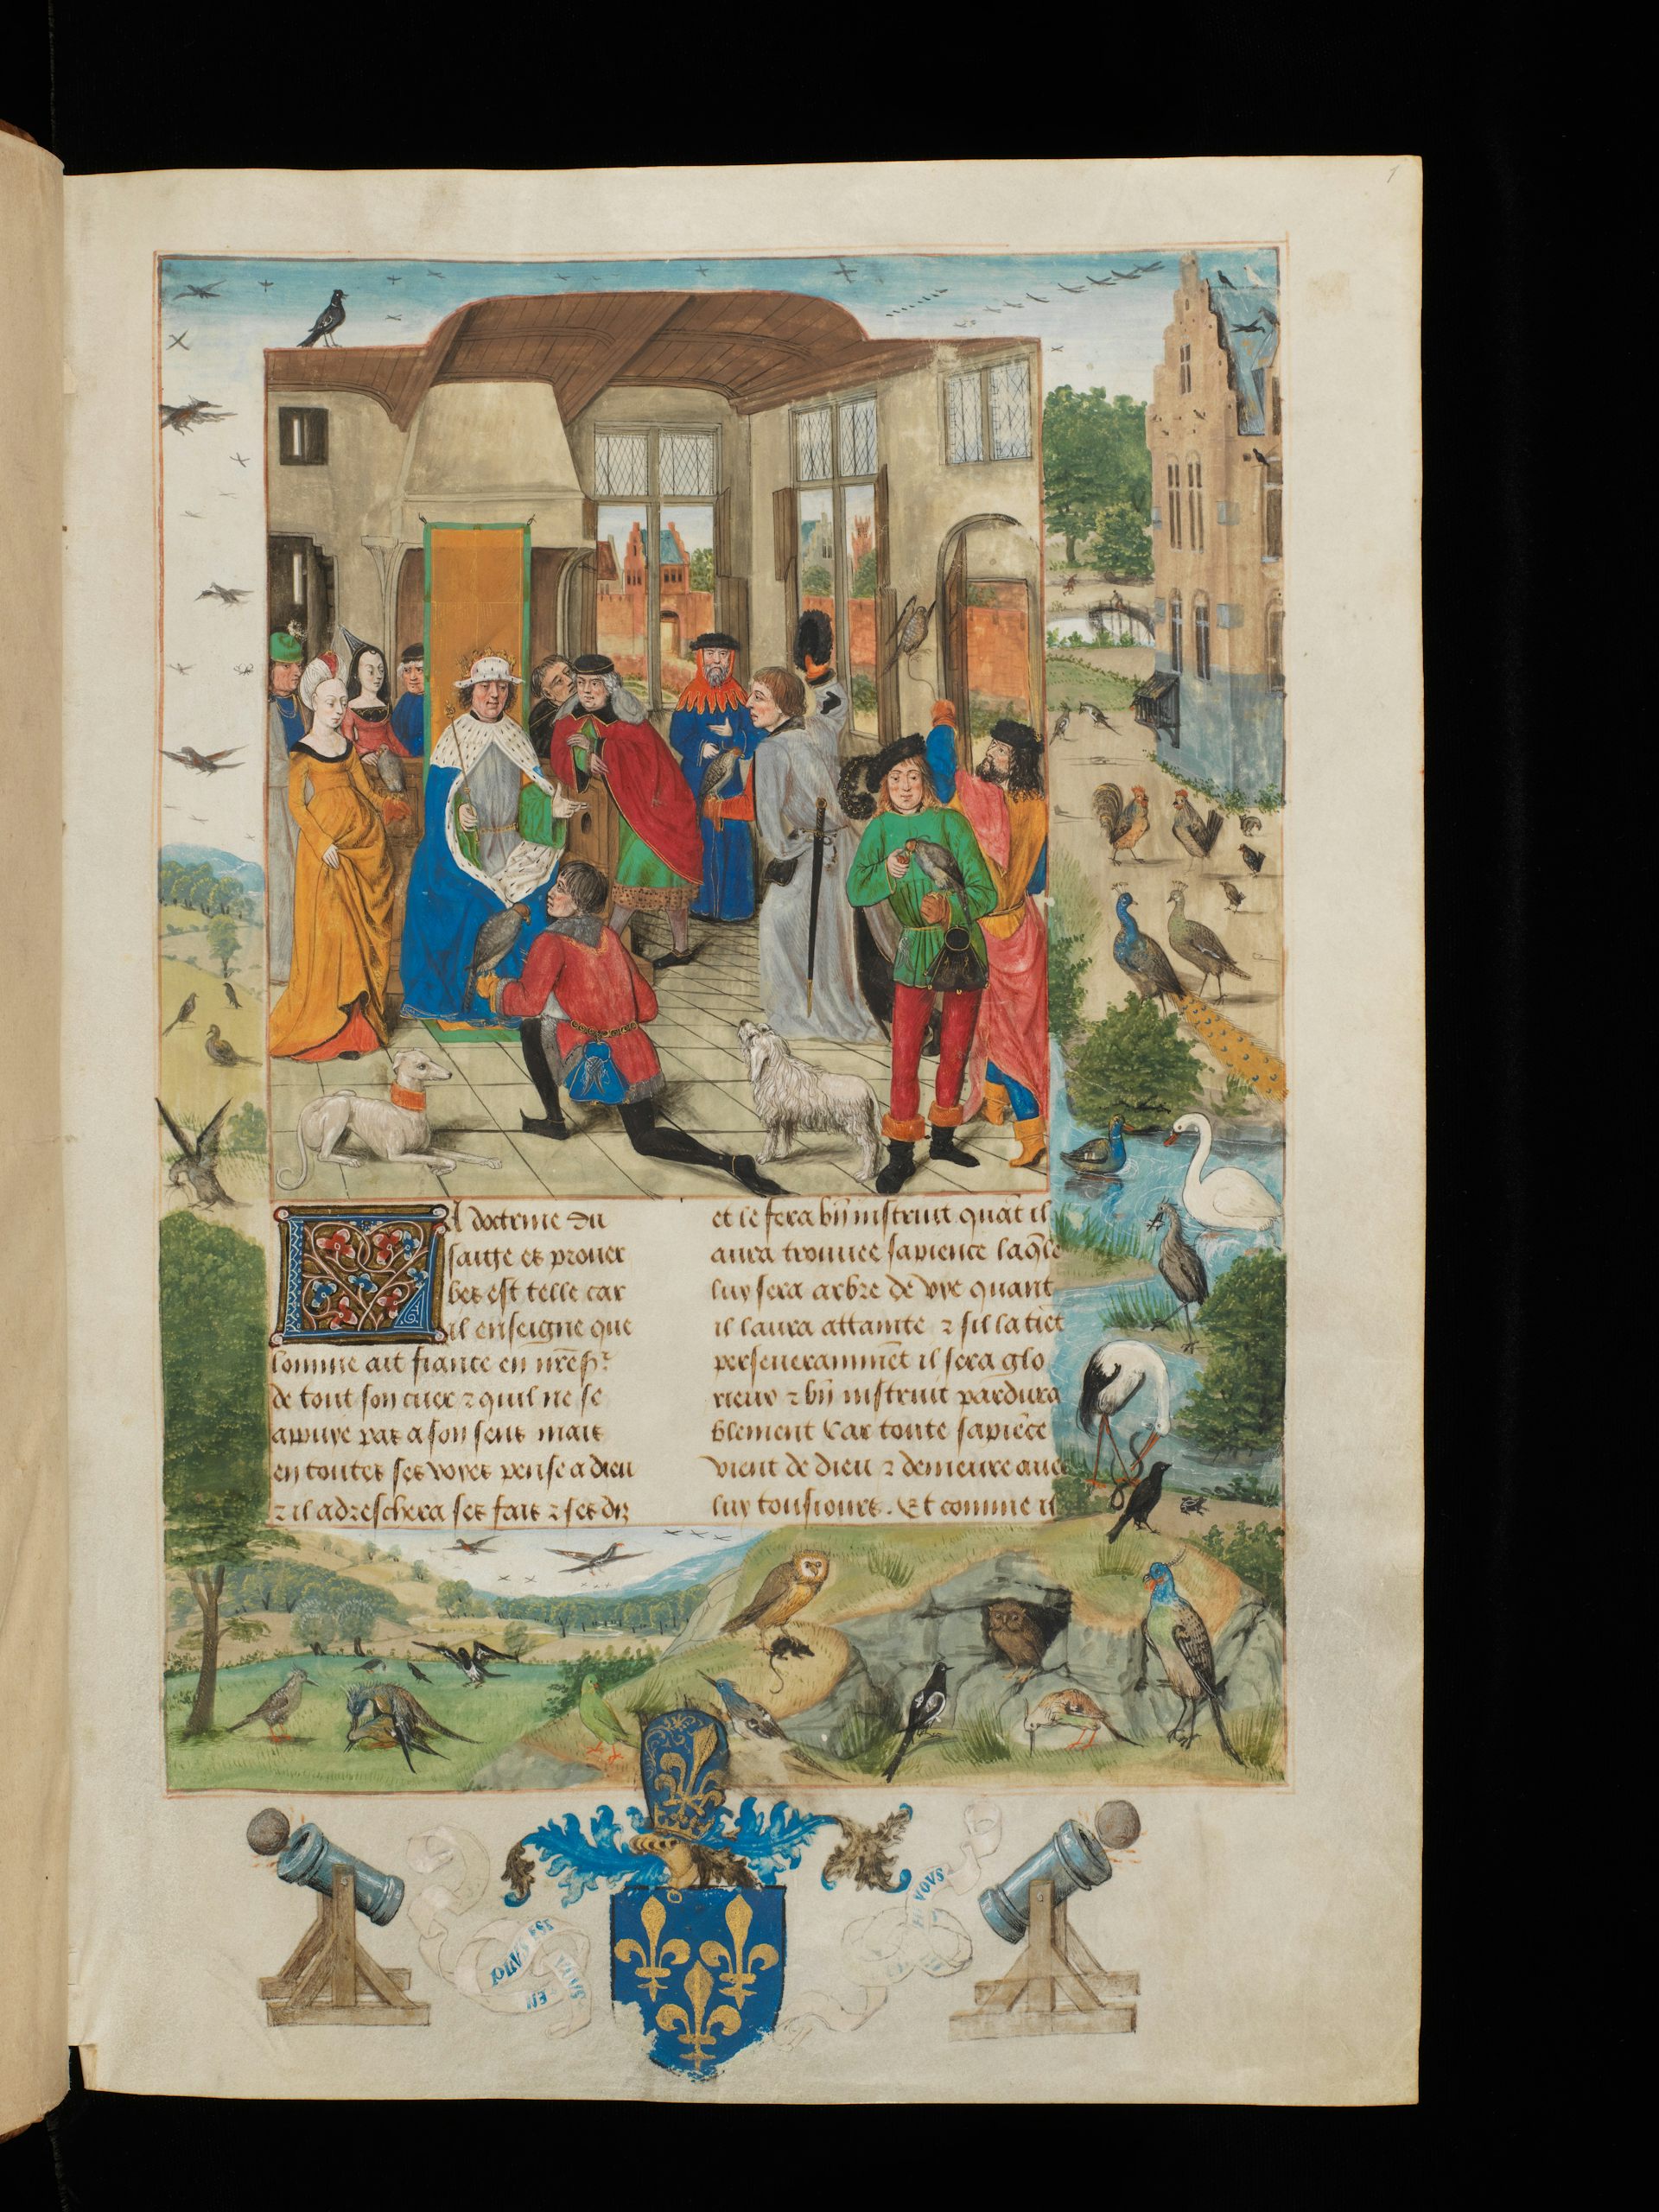 La doctrine du
saige es prouer
bes est telle car
il enseigne que
lomme ait fiance en nr̃e sr̃
de tout son cuer ⁊ quil ne se
appuye pas a son sens mais
en toutes ses voyes pense a dieu
⁊ il adreschera ses fais ⁊ ses dis
et le fera biē instruit quāt il
aura trouuee sapience laq̃le
luy sera arbre de vye quant
il laura attainte ⁊ sil la tiēt
perseuerammēt il sera glo
rieux ⁊ biē instruit pardura
blement Car toute sapiēce
vient de dieu ⁊ demeure auec
luy tousiours. Et comme il
PLUS EST
EN
VOUS
1